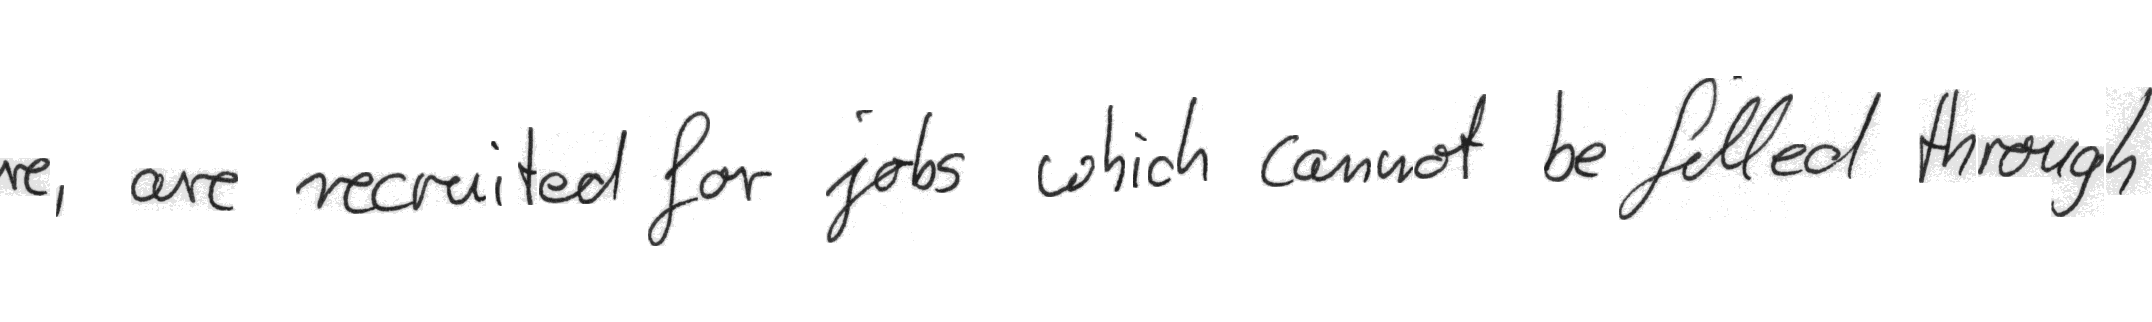 re, are recruited for jobs which cannot be filled through